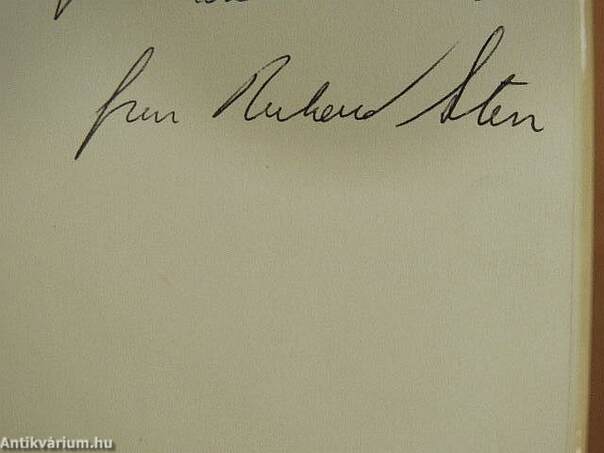 from Richard Stern
Antikvárium.hu